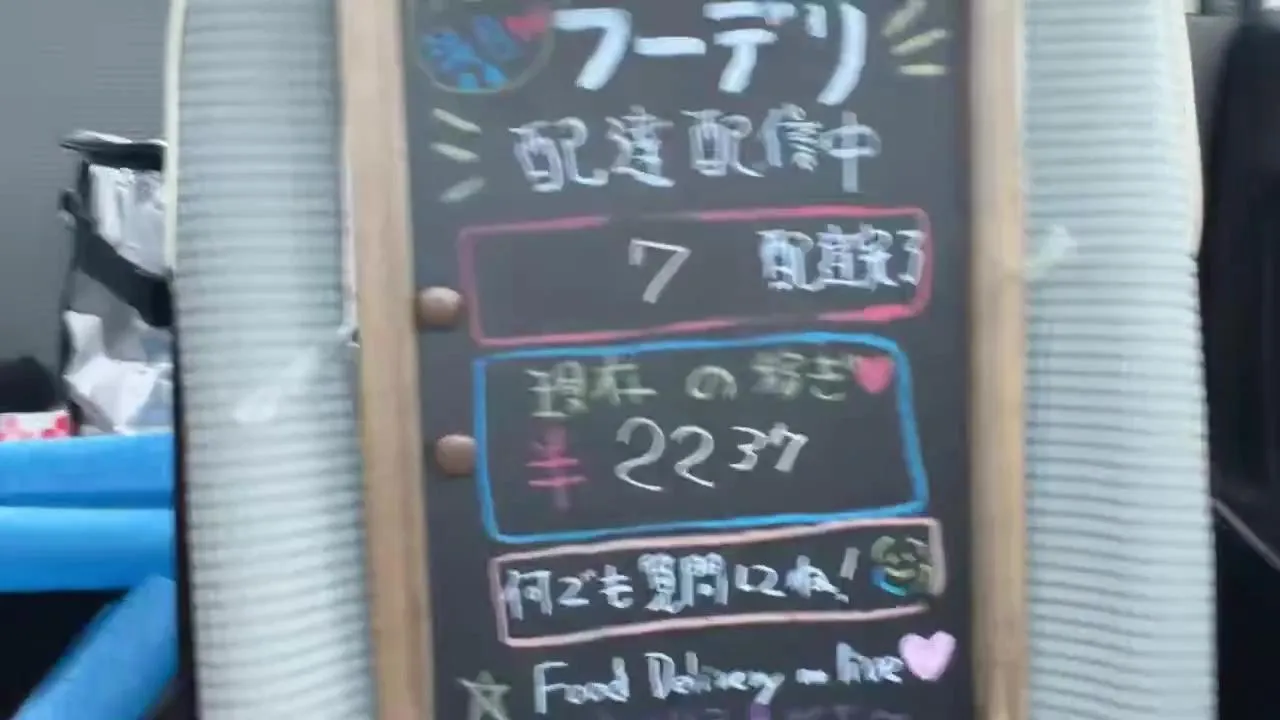 フーデリ
配達配信中
7 配達完了
現在の稼ぎ
¥2237
何でも質問してね!
Food Delivery on live